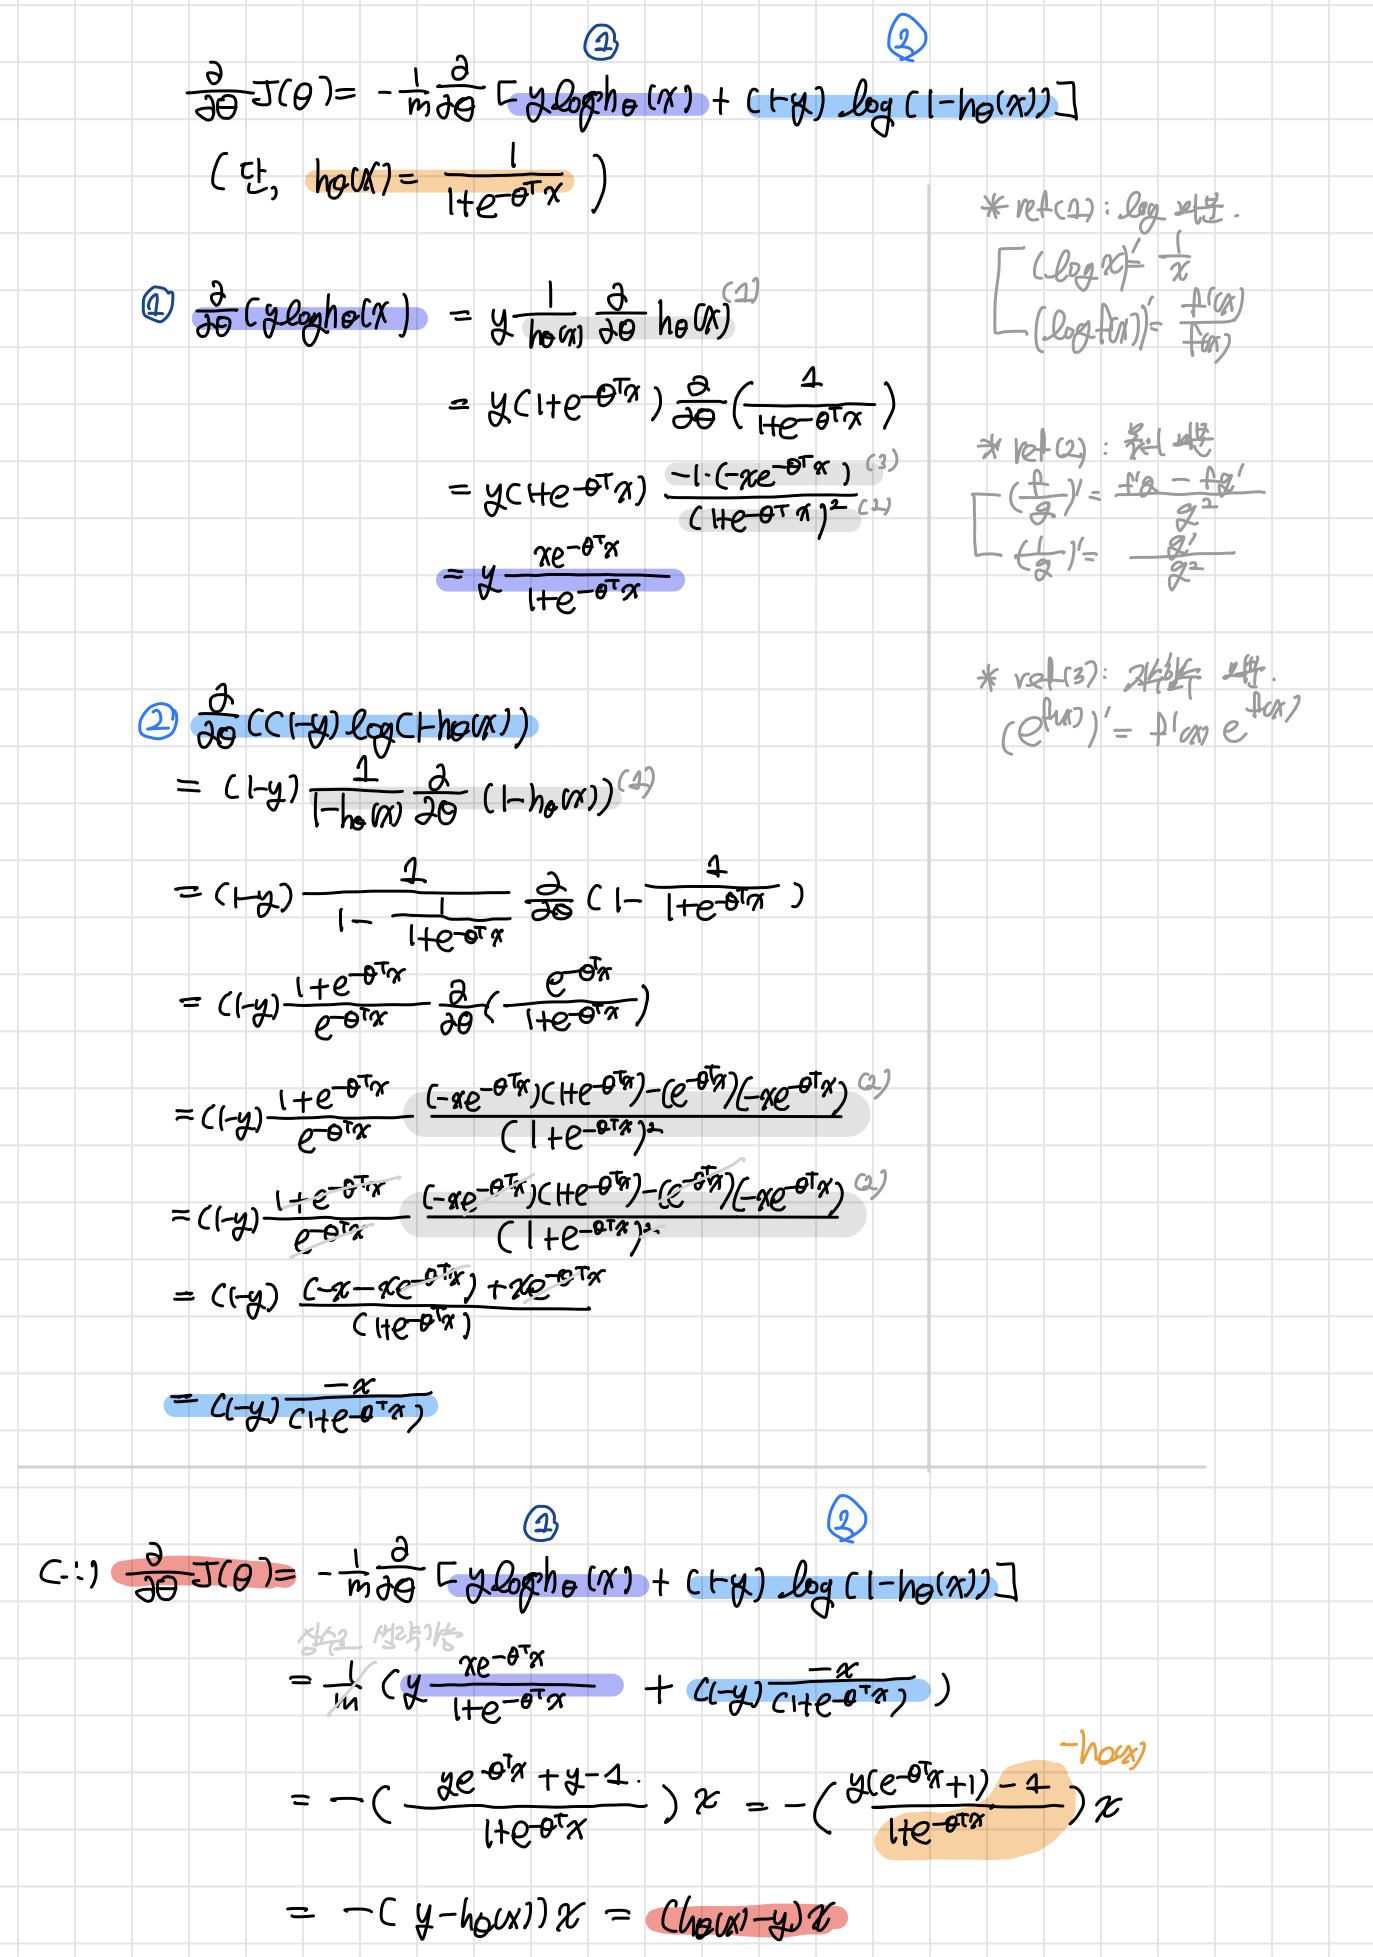 ① ②
∂/∂θ J(θ) = -1/m ∂/∂θ [y log hθ(x) + (1-y) log(1-hθ(x))]
(단, hθ(x) = 1/(1+e^{-θᵀx}))
① ∂/∂θ (y log hθ(x) = y 1/hθ(x) ∂/∂θ hθ(x) (1)
= y(1+e^{-θᵀx}) ∂/∂θ (1/(1+e^{-θᵀx}))
= y(1+e^{-θᵀx}) -1·(-xe^{-θᵀx}) (3) / (1+e^{-θᵀx})² (2)
= y xe^{-θᵀx}/(1+e^{-θᵀx})
② ∂/∂θ ((1-y) log(1-hθ(x)))
= (1-y) 1/(1-hθ(x)) ∂/∂θ (1-hθ(x)) (1)
= (1-y) 1/(1 - 1/(1+e^{-θᵀx})) ∂/∂θ (1 - 1/(1+e^{-θᵀx}))
= (1-y) (1+e^{-θᵀx})/e^{-θᵀx} ∂/∂θ (e^{-θᵀx}/(1+e^{-θᵀx}))
= (1-y) (1+e^{-θᵀx})/e^{-θᵀx} ((-xe^{-θᵀx})(1+e^{-θᵀx})-(e^{-θᵀx})(-xe^{-θᵀx}))/(1+e^{-θᵀx})² (2)
= (1-y) (1+e^{-θᵀx})/e^{-θᵀx} ((-xe^{-θᵀx})(1+e^{-θᵀx})-(e^{-θᵀx})(-xe^{-θᵀx}))/(1+e^{-θᵀx})² (2)
= (1-y) ((-x-xe^{-θᵀx})+xe^{-θᵀx})/(1+e^{-θᵀx})
= (1-y) -x/(1+e^{-θᵀx})
* ref(1) : log 미분.
(log x)' = 1/x
(log f(x))' = f'(x)/f(x)
* ref(2) : 분수 미분
(f/g)' = (f'g - fg')/g²
(1/g)' = g'/g²
* ref(3) : 지수함수 미분.
(e^{f(x)})' = f'(x) e^{f(x)}
① ②
(∴) ∂/∂θ J(θ) = -1/m ∂/∂θ [y log hθ(x) + (1-y) log(1-hθ(x))]
상수로 생략가능
= 1/m (y xe^{-θᵀx}/(1+e^{-θᵀx}) + (1-y) -x/(1+e^{-θᵀx}))
-hθ(x)
= -((ye^{-θᵀx}+y-1)/(1+e^{-θᵀx})) x = -((y(e^{-θᵀx}+1)-1)/(1+e^{-θᵀx})) x
= -(y-hθ(x))x = (hθ(x)-y)x